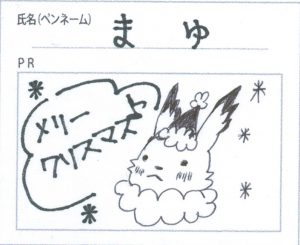 氏名(ペンネーム)
まゅ
PR
メリー
クリスマス